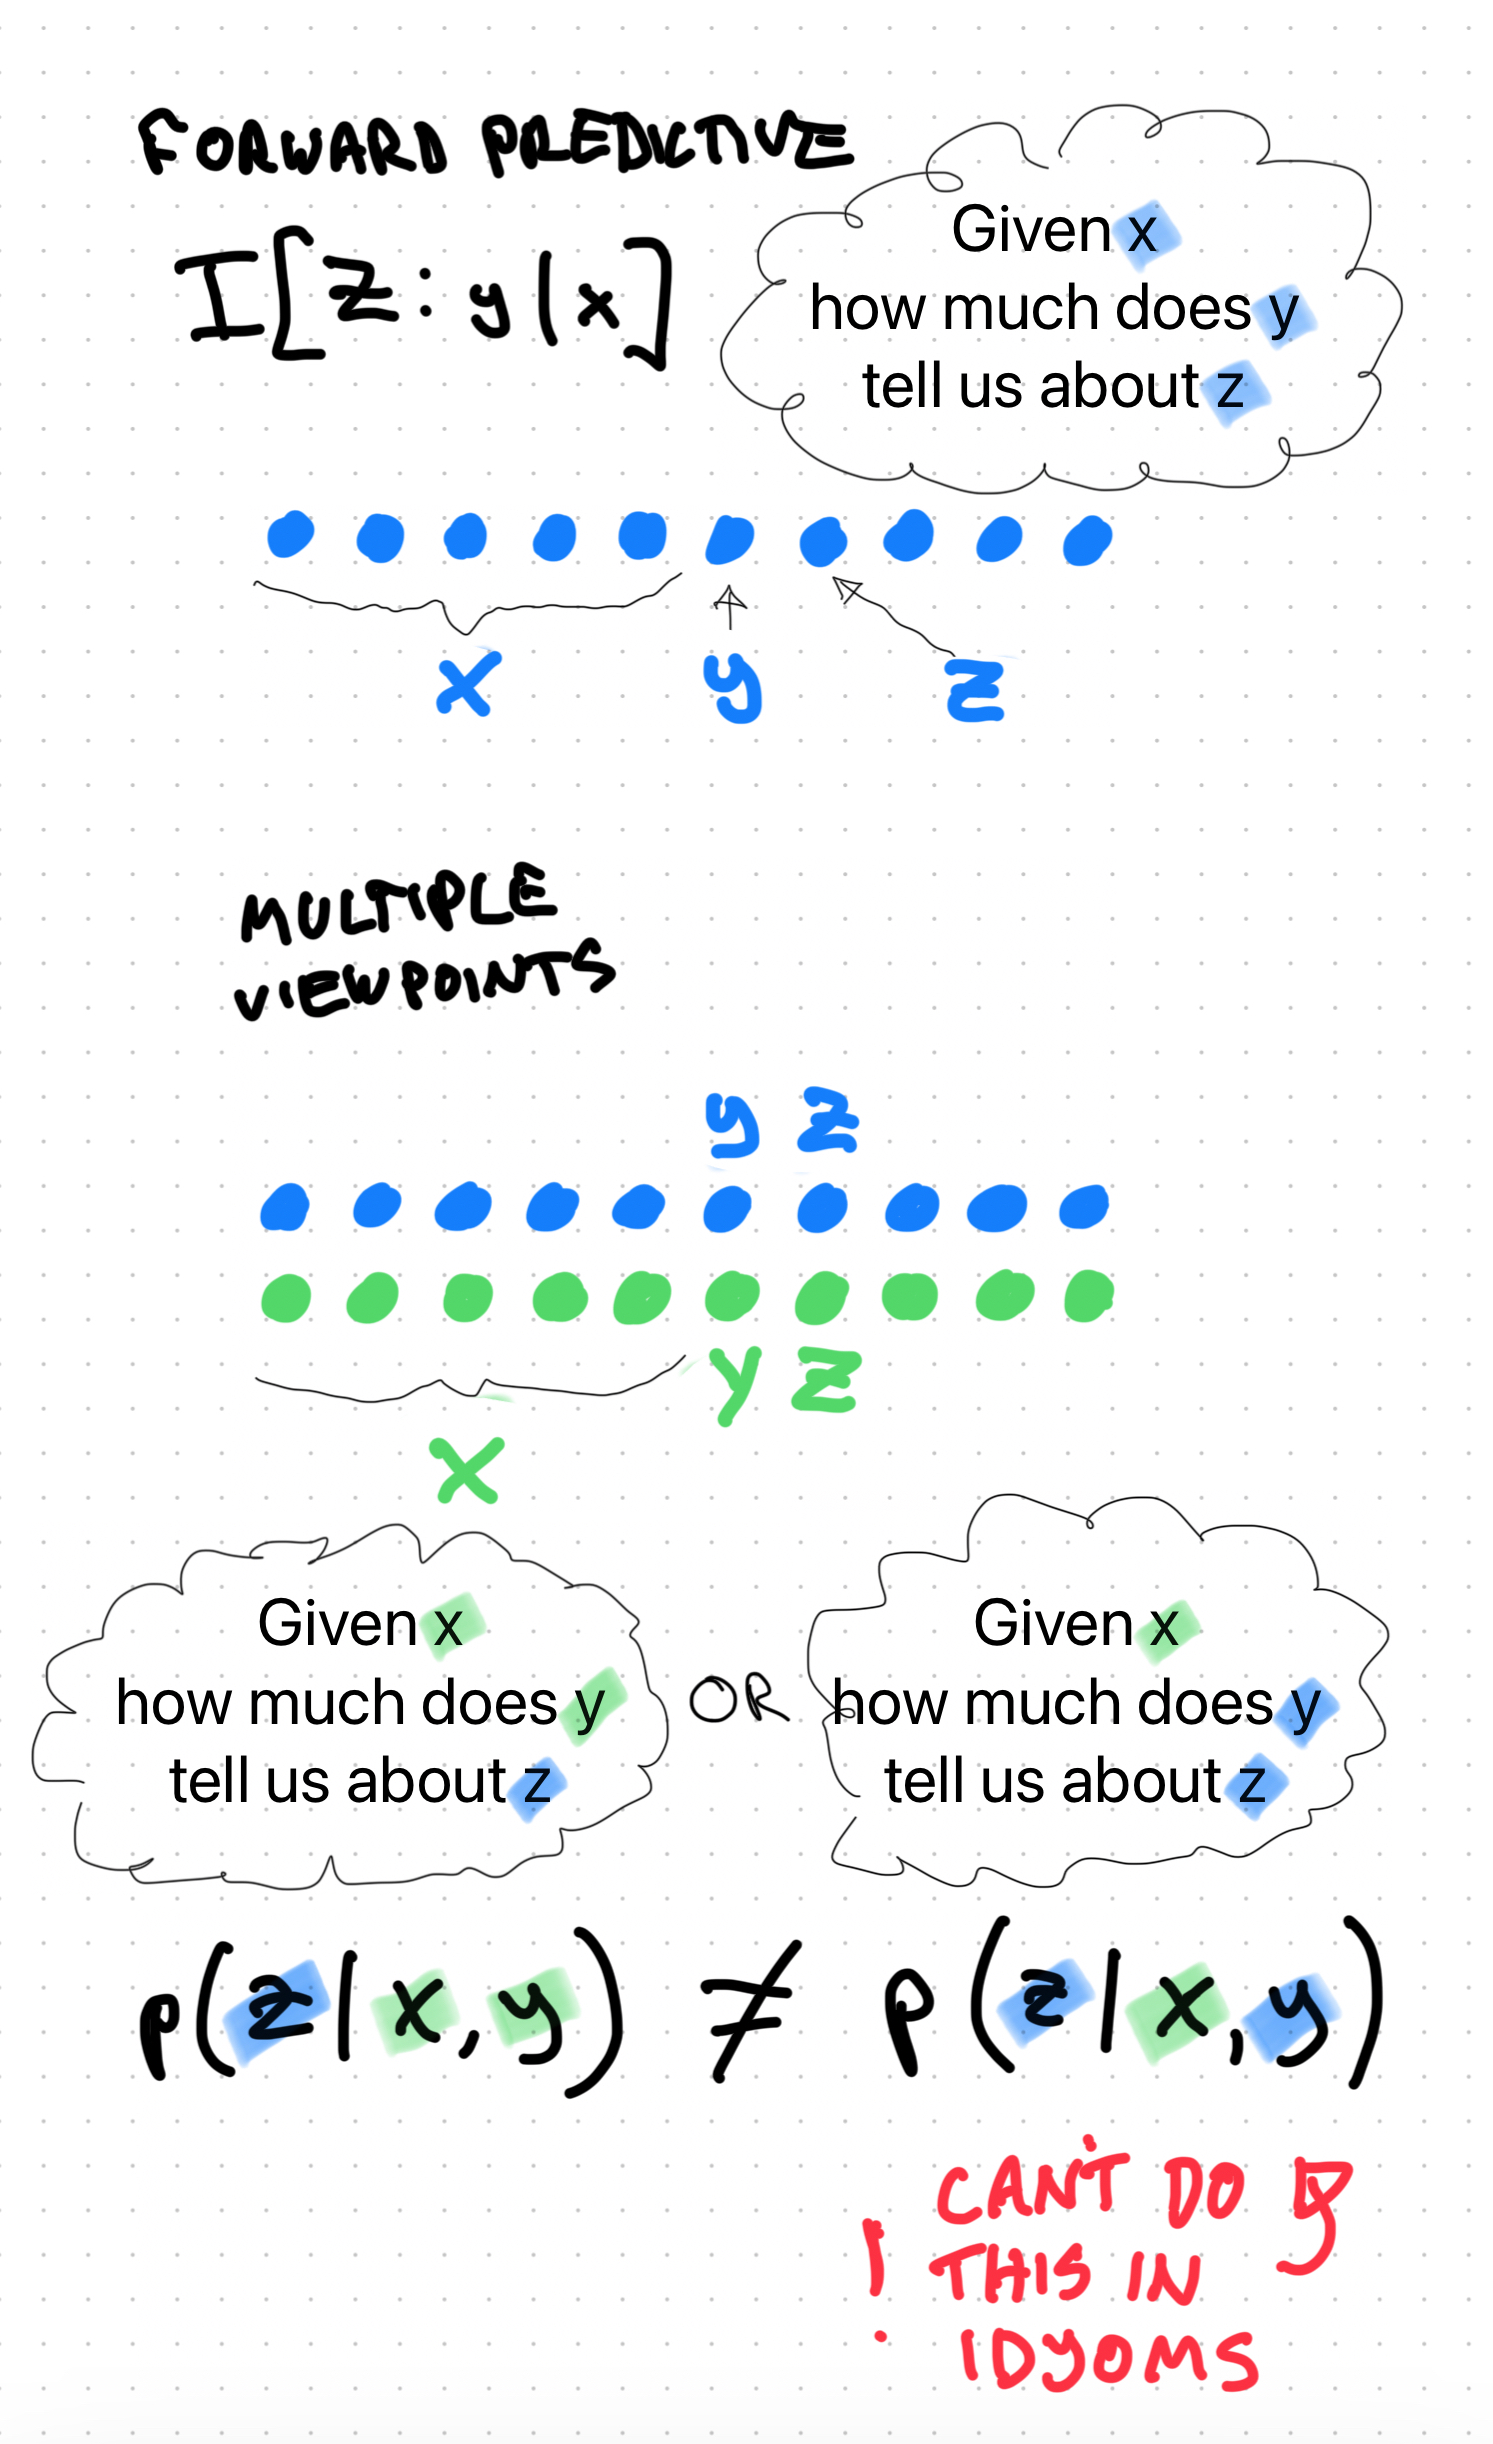 FORWARD PREDICTIVE
I[z:y|x]
Given x
how much does y
tell us about z
x y z
MULTIPLE
VIEWPOINTS
y z
y z
x
Given x
how much does y
tell us about z
OR
Given x
how much does y
tell us about z
p(z|x,y) ≠ p(z|x,y)
! CAN'T DO
THIS IN
IDYOMS